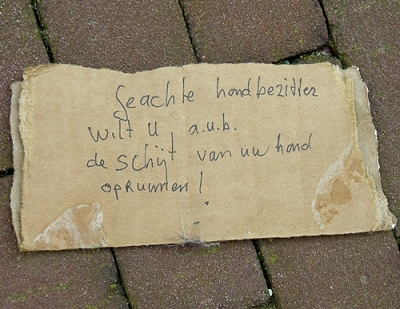 Geachte hondbezitter
wilt u a.u.b.
de schijt van uw hond
opruimen!